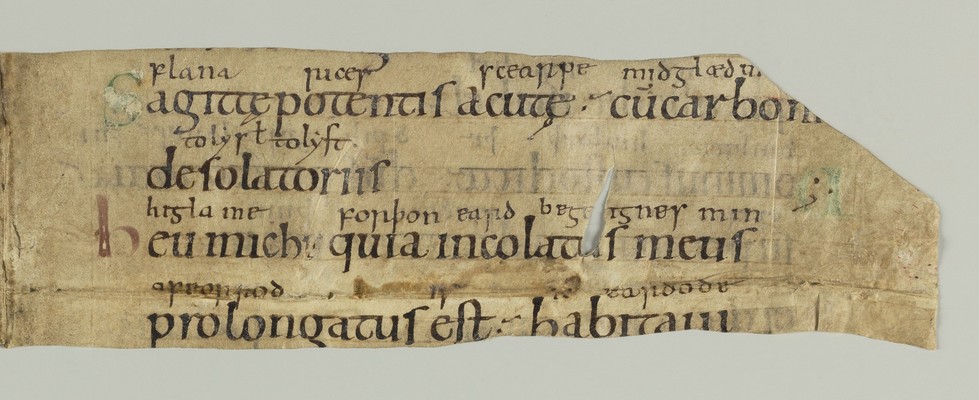 flana rices scearpe mid glædū
Sagittę potentis acutę cū carbon
tolys ł tolyst
desolatoriis
higla me forþon eard begengnes min
heu michi quia incolatus meus
afeorrad is eardode
prolongatus est habitaui